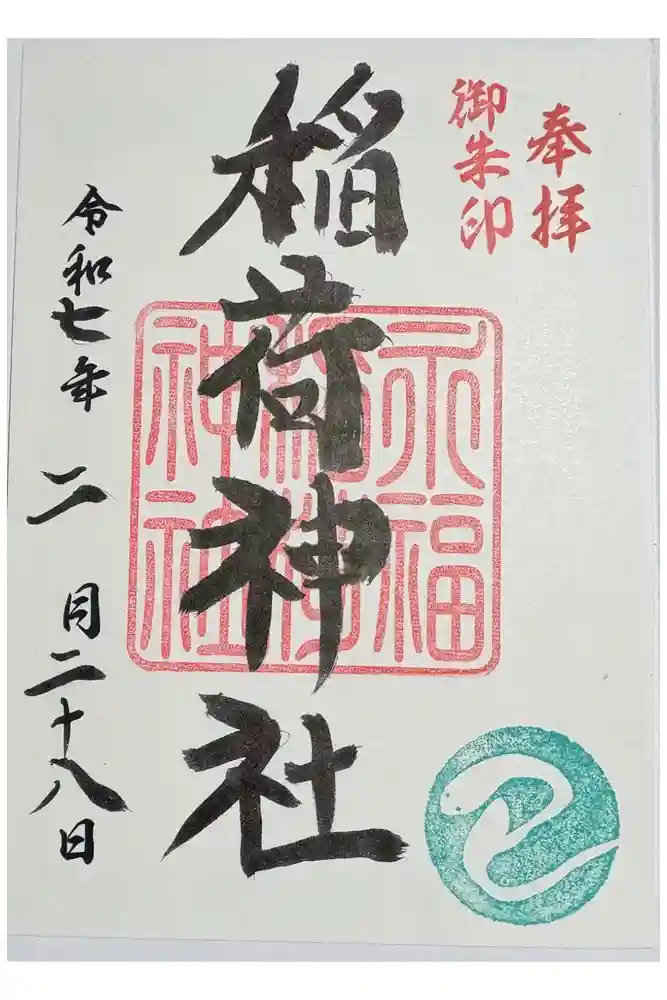 奉拝
御朱印
稲荷神社
永福
稲荷
神社
令和七年二月二十八日